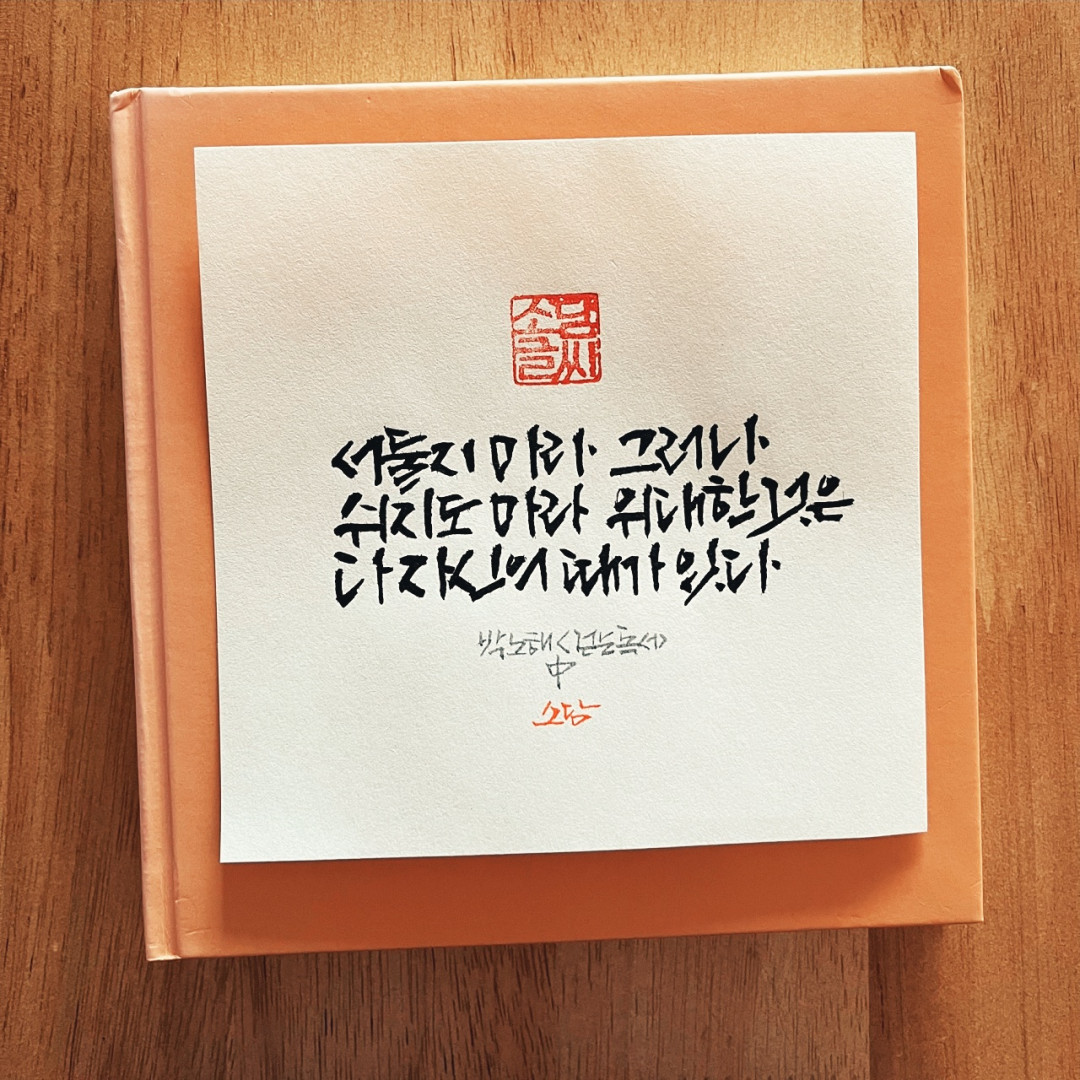 소담
글씨
서둘지 마라 그러나
쉬지도 마라 위대한 것은
다 자신의 때가 있다
박노해 <걷는 독서>
中
소담